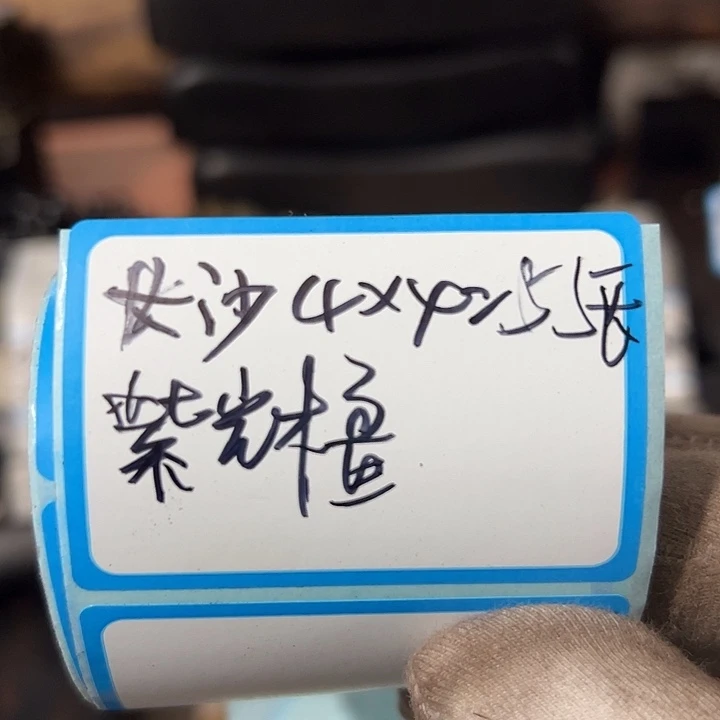 长沙4×4=55张
紫光檀